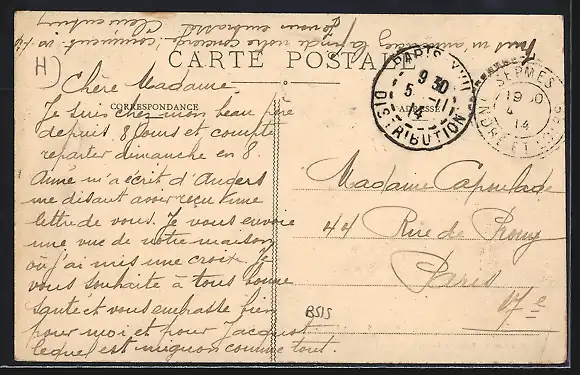 H)
CARTE POSTALE
CORRESPONDANCE
ADRESSE
Chère Madame,
Je suis chez mon beau père
depuis 8 jours et compte
repartir dimanche en 8.
Aimé m'a écrit d'Angers
me disant avoir reçu une
lettre de vous. Je vous envoie
une vue de notre maison
où j'ai mis une croix. Je
vous souhaite à tous bonne
santé et vous embrasse bien
pour moi et pour Jacquot
lequel est mignon comme tout.
Madame Capoulade
44 Rue de Prony
Paris
17e
BSIS
PARIS XVII
9 30
5 11
14
DISTRIBUTION
SEPMES
19 30
4
14
INDRE ET